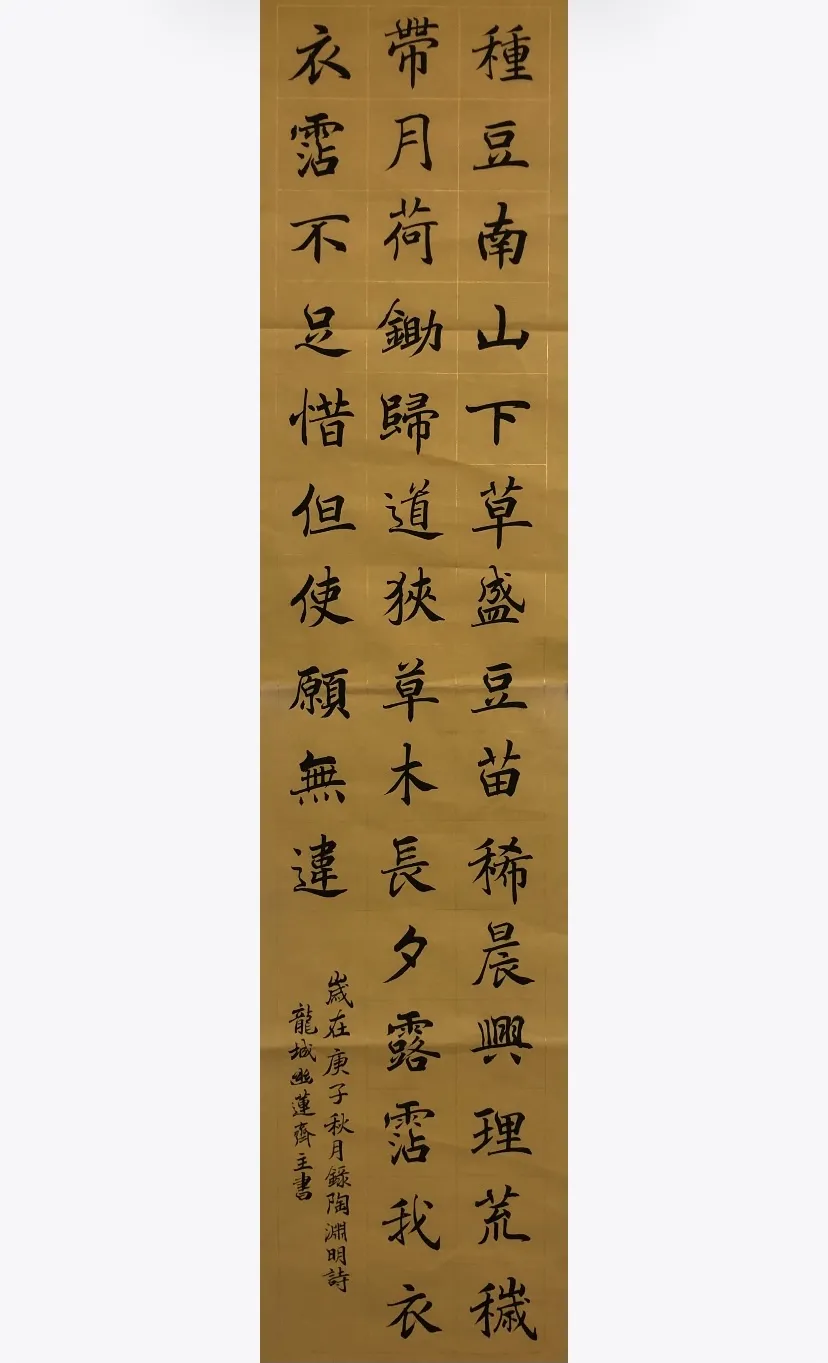 種豆南山下草盛豆苗稀晨興理荒穢
帶月荷鋤歸道狹草木長夕露霑我衣
衣霑不足惜但使願無違
歲在庚子秋月錄陶淵明詩
龍城幽蓮齊主書